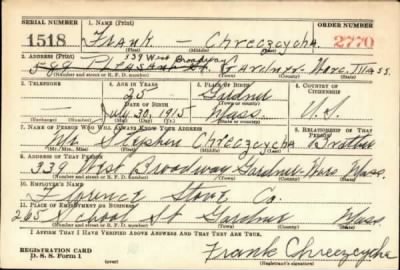 SERIAL NUMBER 1. NAME (Print) ORDER NUMBER
1518 Frank — Chreczycha 2770
(First) (Middle) (Last)
339 West Broadway
2. ADDRESS (Print)
589 Pleasant St. Gardner Worc. Mass.
(Number and street or R. F. D. number) (Town) (County) (State)
3. TELEPHONE 4. AGE IN YEARS 5. PLACE OF BIRTH 6. COUNTRY OF CITIZENSHIP
25 Gardner
DATE OF BIRTH (Town or county)
— July 30, 1915 Mass. U. S.
(Exchange) (Number) (Mo.) (Day) (Yr.) (State or country)
7. NAME OF PERSON WHO WILL ALWAYS KNOW YOUR ADDRESS 8. RELATIONSHIP OF THAT PERSON
Mr. Stephen Chreczycha Brother
(Mr., Mrs., Miss) (First) (Middle) (Last)
9. ADDRESS OF THAT PERSON
339 West Broadway Gardner Worc Mass.
(Number and street or R. F. D. number) (Town) (County) (State)
10. EMPLOYER'S NAME
Florence Stove Co.
11. PLACE OF EMPLOYMENT OR BUSINESS
265 School St Gardner Mass
(Number and street or R. F. D. number) (Town) (County) (State)
I AFFIRM THAT I HAVE VERIFIED ABOVE ANSWERS AND THAT THEY ARE TRUE.
REGISTRATION CARD
D. S. S. Form 1 (over) Frank Chreczycha
(Registrant's signature)